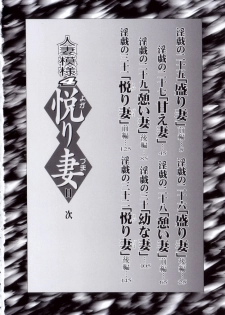 淫戯の二十五「盛り妻」前編
淫戯の二十六「盛り妻」後編
淫戯の二十七「甘え妻」
淫戯の二十八「憩い妻」前編
淫戯の二十九「憩い妻」後編
淫戯の三十「幼な妻」
淫戯の三十一「悦り妻」前編
淫戯の三十二「悦り妻」後編
人妻模様
悦り妻
II
次